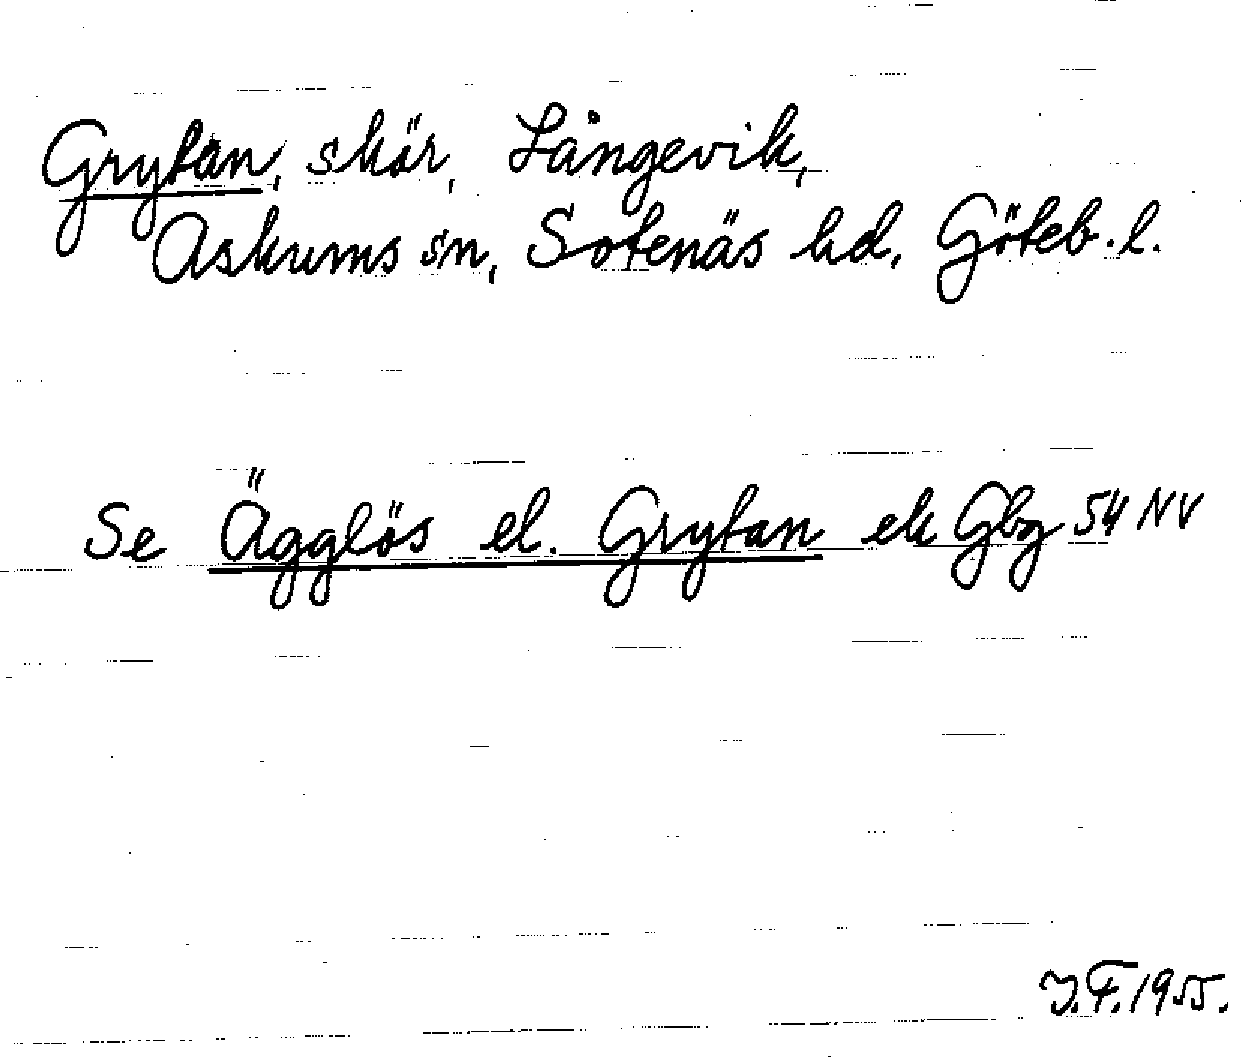 Grytan, skär, Långevik,
Askums sn, Sotenäs hd, Göteb. l.
Se Ägglös el. Grytan ek Gbg 54 NV
J.F. 1955.